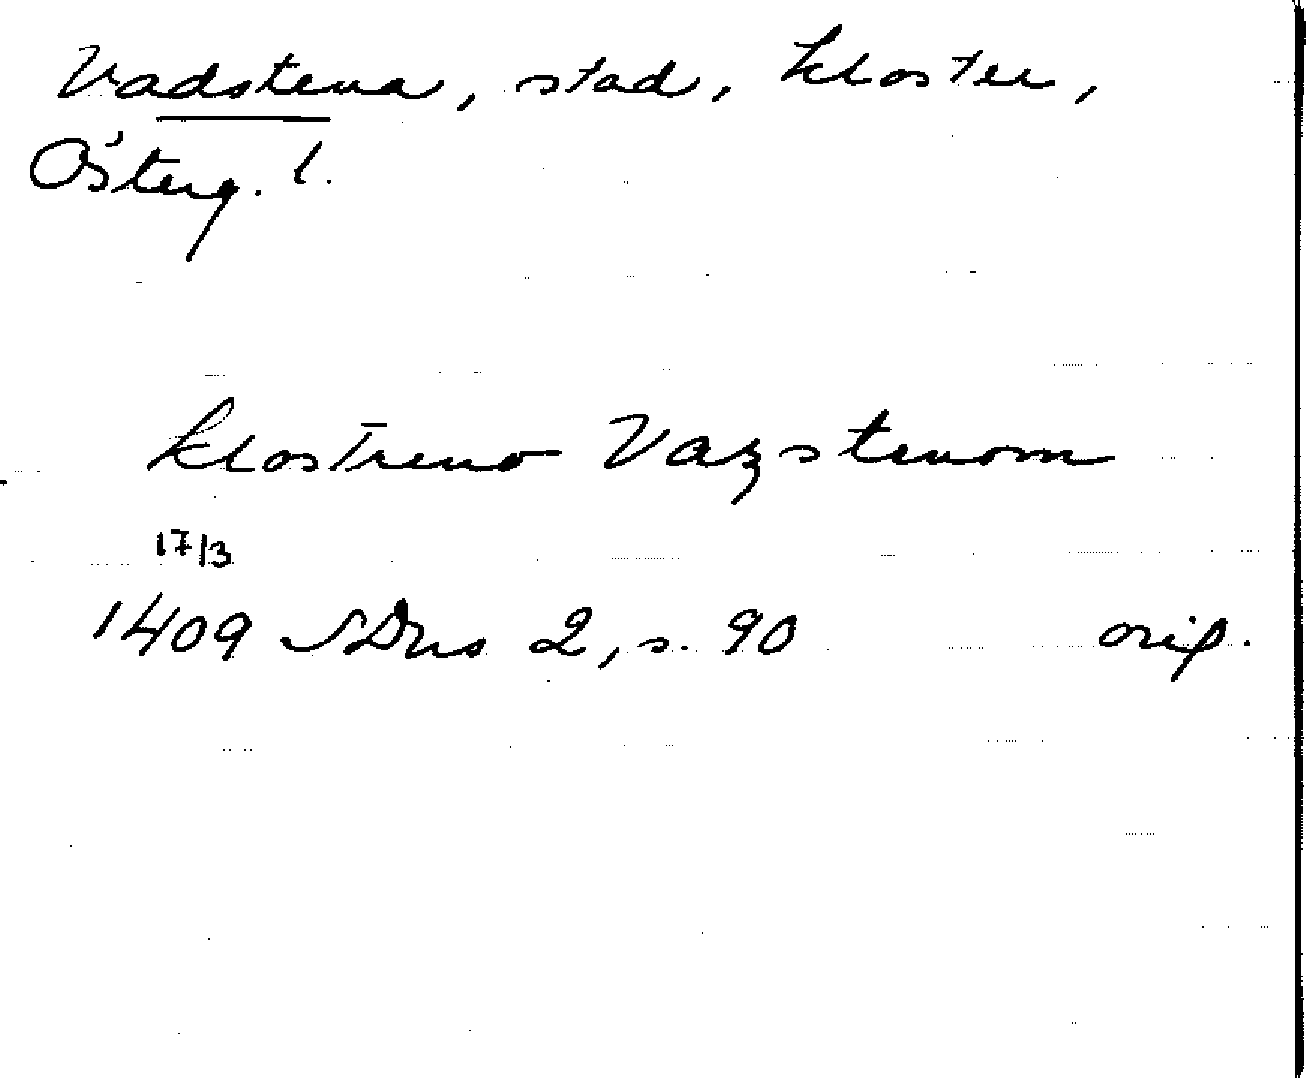 Vadstena, stad, kloster,
Österg. l.
klostreno Vazstenom
17/3
1409 SDns 2, s. 90 orig.